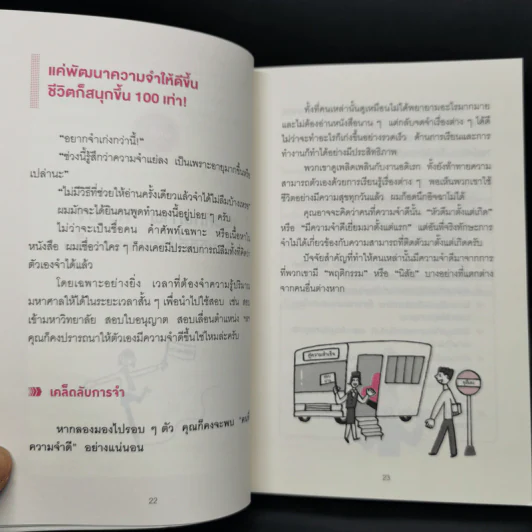 แค่พัฒนาความจำให้ดีขึ้น
ชีวิตก็สนุกขึ้น 100 เท่า!
"อยากจำเก่งกว่านี้!"
"ช่วงนี้รู้สึกว่าความจำแย่ลง เป็นเพราะอายุมากขึ้นหรือ
เปล่านะ"
"ไม่มีวิธีที่ช่วยให้อ่านครั้งเดียวแล้วจำได้ไม่ลืมบ้าง
ผมมักจะได้ยินคนพูดทำนองนี้อยู่บ่อย ๆ ครับ
ไม่ว่าจะเป็นชื่อคน คำศัพท์เฉพาะ หรือเนื้อหา
หนังสือ ผมเชื่อว่าใคร ๆ ก็คงเคยมีประสบการณ์ลืมทั้งที่
ตัวเองจำได้แล้ว
โดยเฉพาะอย่างยิ่ง เวลาที่ต้องจำความรู้ปริมาณ
มหาศาลให้ได้ในระยะเวลาสั้น ๆ เพื่อนำไปใช้สอบ เช่น
เข้ามหาวิทยาลัย สอบใบอนุญาต สอบเลื่อนตำแหน่ง
คุณก็คงปรารถนาให้ตัวเองมีความจำดีขึ้นใช่ไหมล่ะครับ
เคล็ดลับการจำ
หากลองมองไปรอบ ๆ ตัว คุณก็คงจะพบ "คนที่
ความจำดี" อย่างแน่นอน
22
ทั้งที่คนเหล่านั้นดูเหมือนไม่ได้พยายามอะไรมากมาย
และไม่ต้องอ่านหนังสือนาน ๆ แต่กลับจดจำเรื่องต่าง ๆ ได้ดี
ไม่ว่าจะทำอะไรก็เก่งขึ้นอย่างรวดเร็ว ด้านการเรียนและการ
ทำงานก็ทำได้อย่างมีประสิทธิภาพ
พวกเขาดูเพลิดเพลินกับงานอดิเรก ทั้งยังท้าทายความ
สามารถตัวเองด้วยการเรียนรู้เรื่องต่าง ๆ พอเห็นพวกเขาใช้
ชีวิตอย่างมีความสุขทุกวันแล้ว ผมก็อดนึกอิจฉาไม่ได้
คุณอาจจะคิดว่าคนที่ความจำดีนั้น "หัวดีมาตั้งแต่เกิด"
หรือ "มีความจำดีเยี่ยมมาตั้งแต่แรก" แต่อันที่จริงทักษะการ
จำไม่ได้เกี่ยวข้องกับความสามารถที่ติดตัวมาตั้งแต่เกิดครับ
ปัจจัยสำคัญที่ทำให้คนเหล่านั้นมีความจำดีมาจากการ
ที่พวกเขามี "พฤติกรรม" หรือ "นิสัย" บางอย่างที่แตกต่าง
จากคนอื่นต่างหาก
23